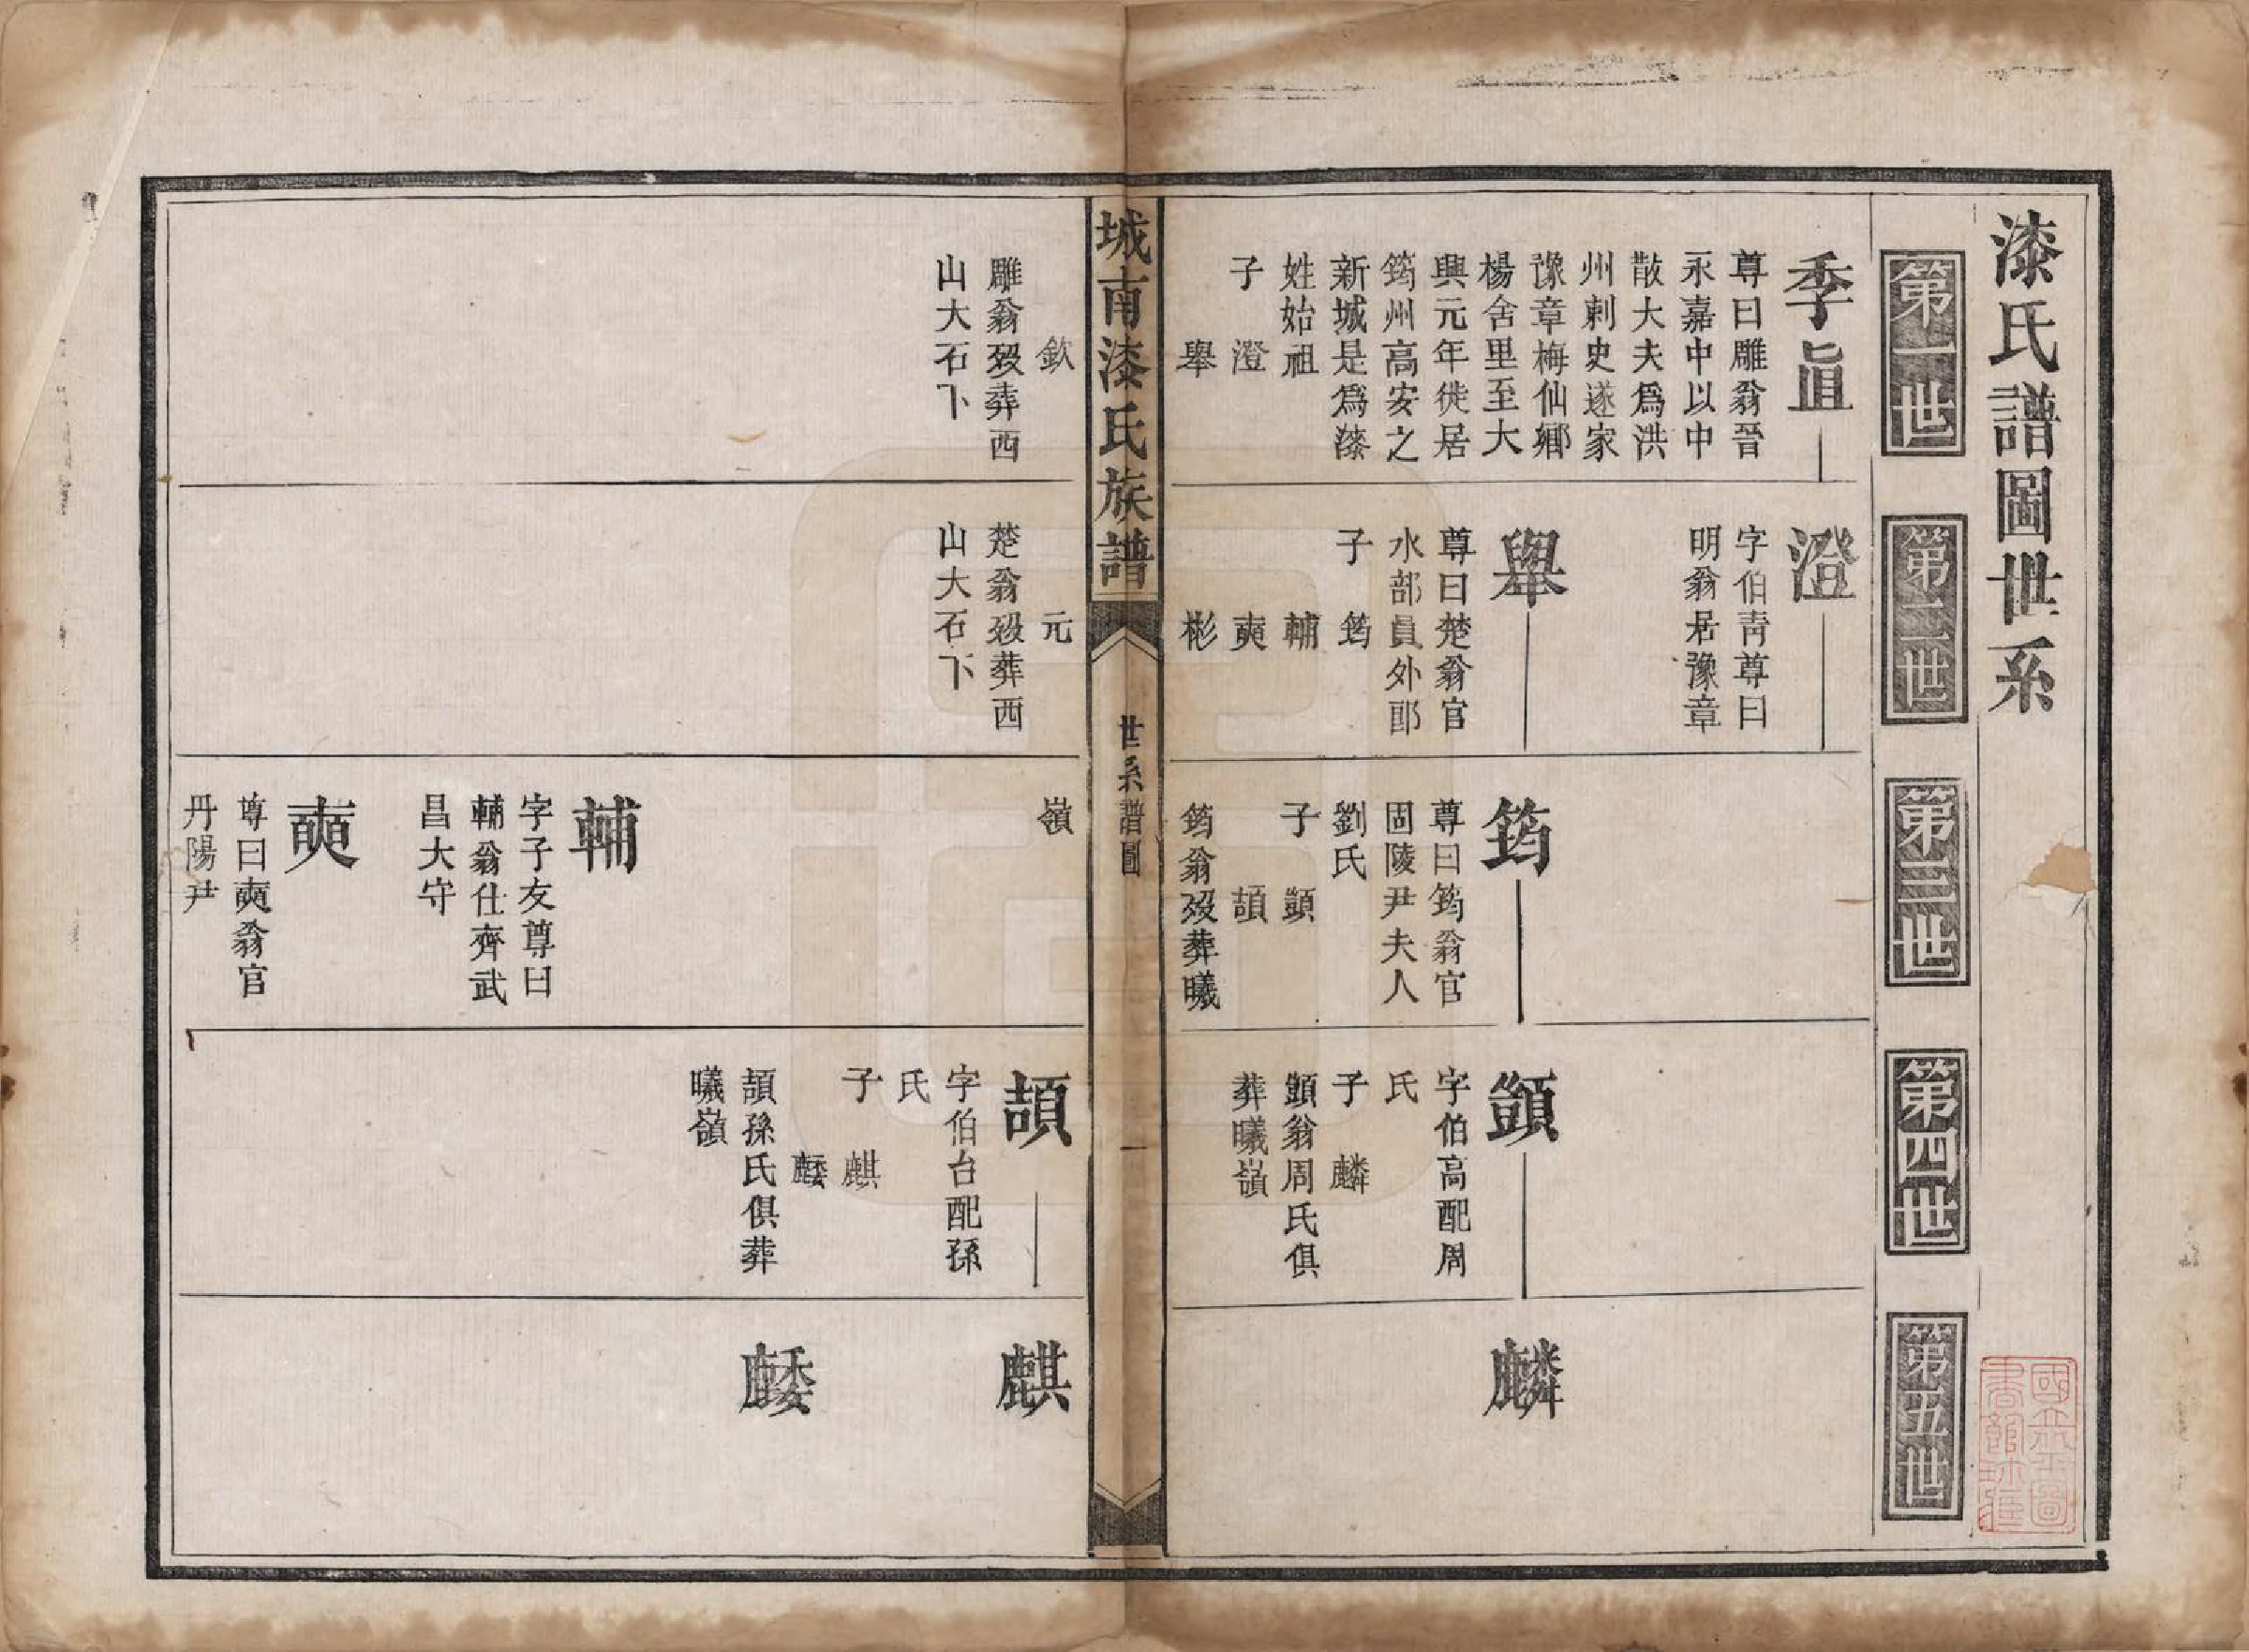 漆氏譜圖世系
第一世
第二世
第三世
第四世
第五世
季眞
尊曰雕翁晉
永嘉中以中
散大夫爲洪
州刺史遂家
豫章梅仙鄉
楊舍里至大
興元年徙居
筠州高安之
新城是爲漆
姓始祖
子 澄
舉
澄
字伯靑尊曰
明翁居豫章
舉
尊曰楚翁官
水部員外郎
子 筠
輔
奭
彬
筠
尊曰筠翁官
固陵尹夫人
劉氏
子 顗
頡
筠翁歿葬曦
顗
字伯高配周
氏
子 麟
顗翁周氏俱
葬曦嶺
麟
城南漆氏族譜
世系譜圖
一
欽
雕翁歿葬西
山大石下
元
楚翁歿葬西
山大石下
嶺
輔
字子友尊曰
輔翁仕齊武
昌大守
奭
尊曰奭翁官
丹陽尹
頡
字伯台配孫
氏
子 麒
頡孫氏俱葬
曦嶺
麒